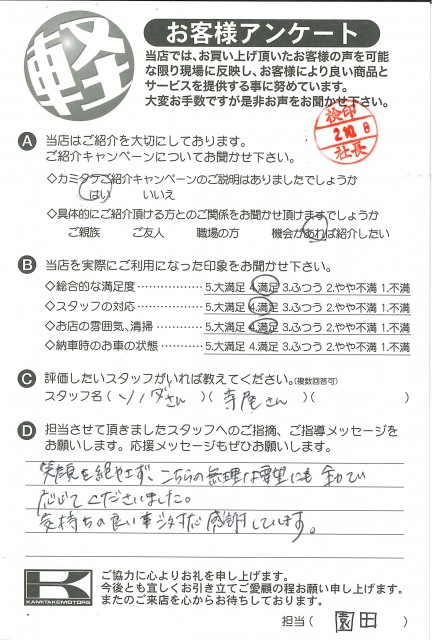 軽
お客様アンケート
当店では、お買い上げ頂いたお客様の声を可能
な限り現場に反映し、お客様により良い商品と
サービスを提供する事に努めています。
大変お手数ですが是非お声をお聞かせ下さい。
検印
2.10.8
社長
A 当店はご紹介を大切にしております。
ご紹介キャンペーンについてお聞かせ下さい。
◇カミタケご紹介キャンペーンのご説明はありましたでしょうか
はい いいえ
◇具体的にご紹介頂ける方とのご関係をお聞かせ頂けますでしょうか
ご親族 ご友人 職場の方 機会があれば紹介したい
B 当店を実際にご利用になった印象をお聞かせ下さい。
◇総合的な満足度 ⋯⋯⋯⋯⋯ 5.大満足 4.満足 3.ふつう 2.やや不満 1.不満
◇スタッフの対応 ⋯⋯⋯⋯⋯ 5.大満足 4.満足 3.ふつう 2.やや不満 1.不満
◇お店の雰囲気、清掃 ⋯⋯⋯ 5.大満足 4.満足 3.ふつう 2.やや不満 1.不満
◇納車時のお車の状態 ⋯⋯⋯ 5.大満足 4.満足 3.ふつう 2.やや不満 1.不満
C 評価したいスタッフがいれば教えてください。(複数回答可)
スタッフ名 (ソノダさん)(寺尾さん)( )
D 担当させて頂きましたスタッフへのご指摘、ご指導メッセージを
お願いします。応援メッセージもぜひお願いします。
笑顔を絶やさず、こちらの無理な要望にも全て
応じてくださいました。
気持ちの良い対応 感謝しています。
K
KAMITAKE MOTORS
ご協力に心よりお礼を申し上げます。
今後とも宜しくお引き立てご愛顧の程お願い申し上げます。
またのご来店を心からお待ちしております。
担当 (園田)